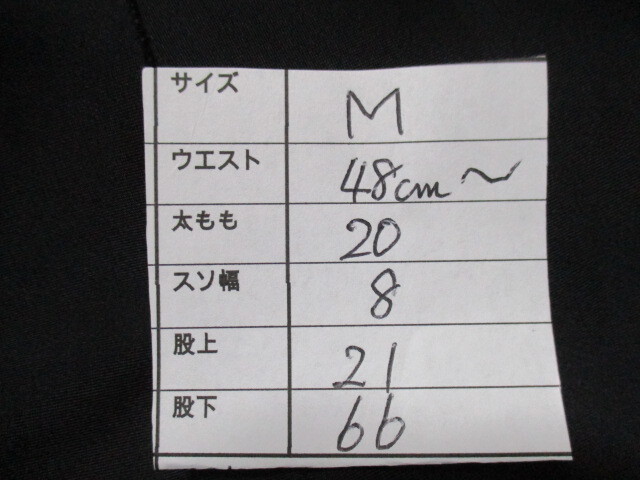 サイズ M
ウエスト 48cm～
太もも 20
スソ幅 8
股上 21
股下 66